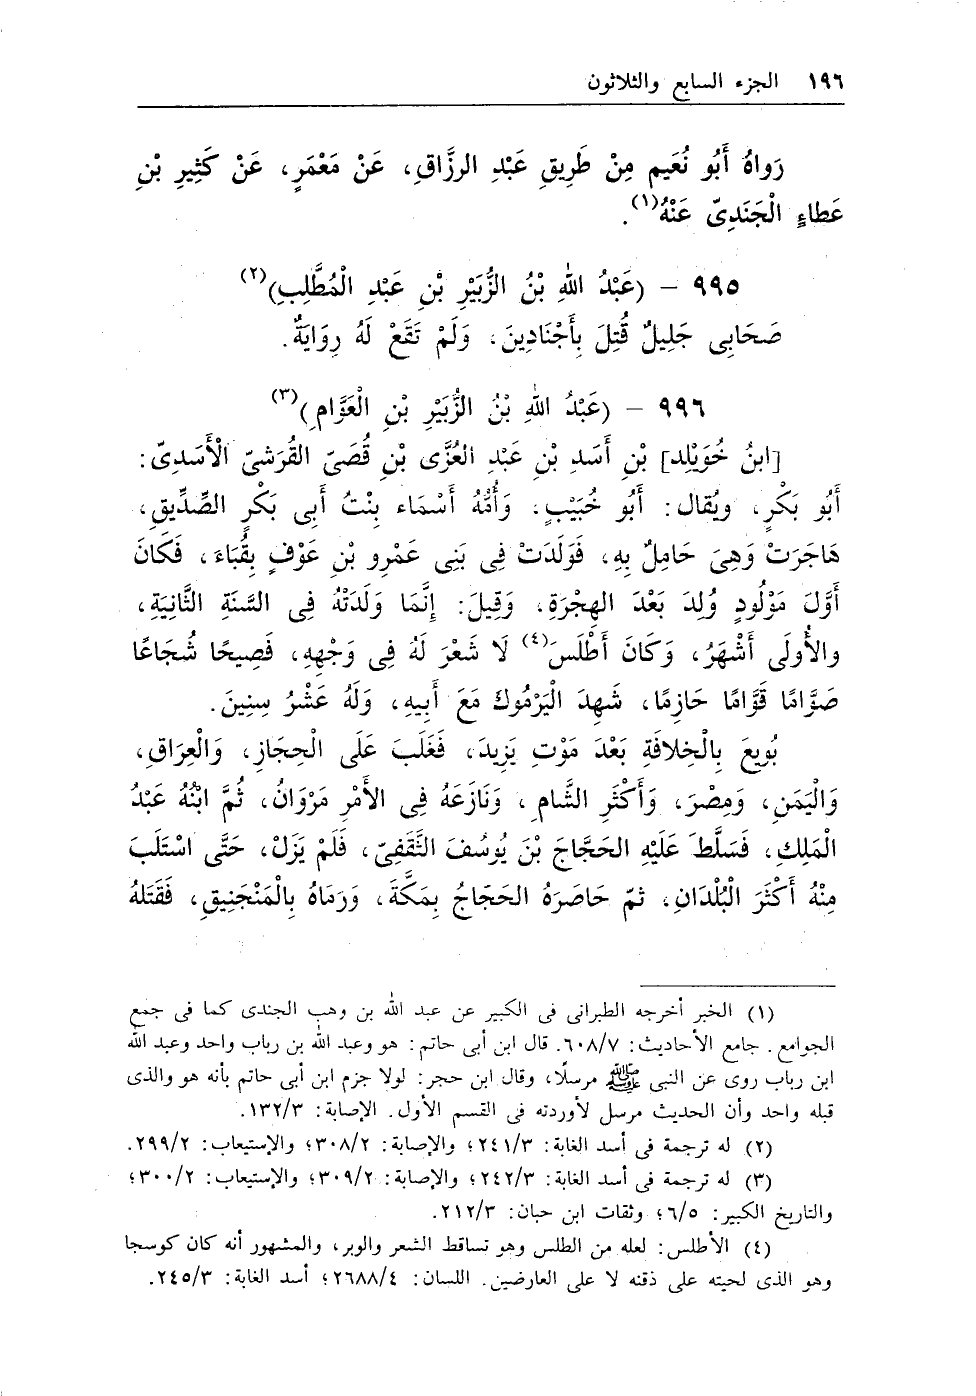 ١٩٦ الجزء السابع والثلاثون
رَواهُ أَبُو نُعَيم مِنْ طَرِيقِ عَبْدِ الرزَّاقِ، عَنْ مَعْمَرٍ، عَنْ كَثِيرِ بْنِ
عَطاءٍ الْجَنَدِىّ عَنْهُ(١).
٩٩٥ - (عَبْدُ اللهِ بْنُ الزُّبَيْرِ بْنِ عَبْدِ الْمُطَّلِبِ)(٢)
صَحَابِى جَلِيلٌ قُتِلَ بِأَجْنَادِينَ، وَلَمْ تَقَعْ لَهُ رِوَايَةٌ.
٩٩٦ - (عَبْدُ اللهِ بْنُ الزُّبَيْرِ بْنِ الْعَوَّامِ)(٣)
[ابنُ خُوَيْلِد] بْنِ أَسَدِ بْنِ عَبْدِ العُزَّى بْنِ قُصَىّ القُرَشىّ الْأَسَدِىّ:
أَبُو بَكْرٍ، ويُقال: أَبُو خُبَيْبٍ. وَأُمُّهُ أَسْمَاء بِنْتُ أَبِى بَكْرٍ الصِّدِّيقِ،
هَاجَرَتْ وَهِىَ حَامِلٌ بِهِ، فَوَلَدَتْ فِى بَنِى عَمْرِو بْنِ عَوْفٍ بِقُبَاءَ، فَكَانَ
أَوَّلَ مَوْلُودٍ وُلِدَ بَعْدَ الهِجْرَةِ، وَقِيلَ: إِنَّمَا وَلَدَتْهُ فِى السَّنَةِ الثَّانِيَةِ،
والأُولَى أَشْهَرُ، وَكَانَ أَطْلَسَ(٤) لَا شَعْرَ لَهُ فِى وَجْهِهِ، فَصِيحًا شُجَاعًا
صَوَّامًا قَوَّامًا حَازِمًا، شَهِدَ الْيَرْمُوكَ مَعَ أَبِيهِ، وَلَهُ عَشْرُ سِنِينَ.
بُويعَ بِالْخِلافَةِ بَعْدَ مَوْتِ يَزِيدَ، فَغَلَبَ عَلَى الْحِجَازِ، وَالْعِرَاقِ،
وَالْيَمَنِ، وَمِصْرَ، وَأَكْثَرِ الشَّامِ، وَنَازَعَهُ فِى الأَمْرِ مَرْوَانُ، ثُمَّ ابْنُهُ عَبْدُ
الْمَلِكِ، فَسَلَّطَ عَلَيْهِ الحَجَّاجَ بْنَ يُوسُفَ الثَّقَفِىّ، فَلَمْ يَزَلْ، حَتَّى اسْتَلَبَ
مِنْهُ أَكْثَرَ الْبُلْدَانِ، ثمّ حَاصَرَهُ الحَجَاجُ بِمَكَّةَ، وَرَمَاهُ بِالْمَنْجَنِيقِ، فَقَتَلهُ
(١) الخبر أخرجه الطبرانى فى الكبير عن عبد الله بن وهب الجندى كما فى جمع
الجوامع. جامع الأحاديث: ٦٠٨/٧. قال ابن أبى حاتم: هو وعبد الله بن رباب واحد وعبد الله
ابن رباب روى عن النبى ﷺ مرسلًا، وقال ابن حجر: لولا جزم ابن أبى حاتم بأنه هو والذى
قبله واحد وأن الحديث مرسل لأوردته فى القسم الأول. الإصابة: ١٣٢/٣.
(٢) له ترجمة فى أسد الغابة: ٢٤١/٣؛ والإصابة: ٣٠٨/٢؛ والإستيعاب: ٢٩٩/٢.
(٣) له ترجمة فى أسد الغابة: ٢٤٢/٣؛ والإصابة: ٣٠٩/٢؛ والإستيعاب: ٣٠٠/٢؛
والتاريخ الكبير: ٦/٥؛ وثقات ابن حبان: ٢١٢/٣.
(٤) الأطلس: لعله من الطلس وهو تساقط الشعر والوبر، والمشهور أنه كان كوسجا
وهو الذى لحيته على ذقنه لا على العارضين. اللسان: ٢٦٨٨/٤؛ أسد الغابة: ٢٤٥/٣.